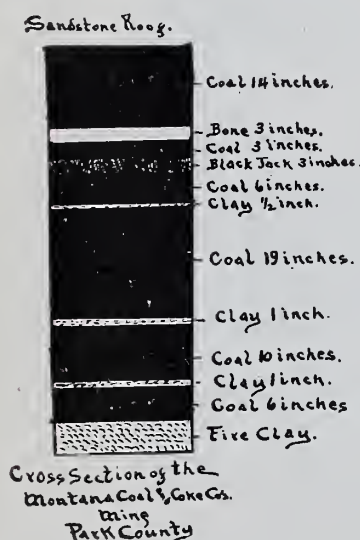 Sandstone Roof.
Coal 14 inches.
Bone 3 inches.
Coal 3 inches.
Black Jack 3 inches.
Coal 6 inches.
Clay 1/2 inch.
Coal 19 inches.
Clay 1 inch.
Coal 10 inches.
Clay 1 inch.
Coal 6 inches
Fire Clay.
Cross Section of the
Montana Coal & Coke Cos.
Mine
Park County